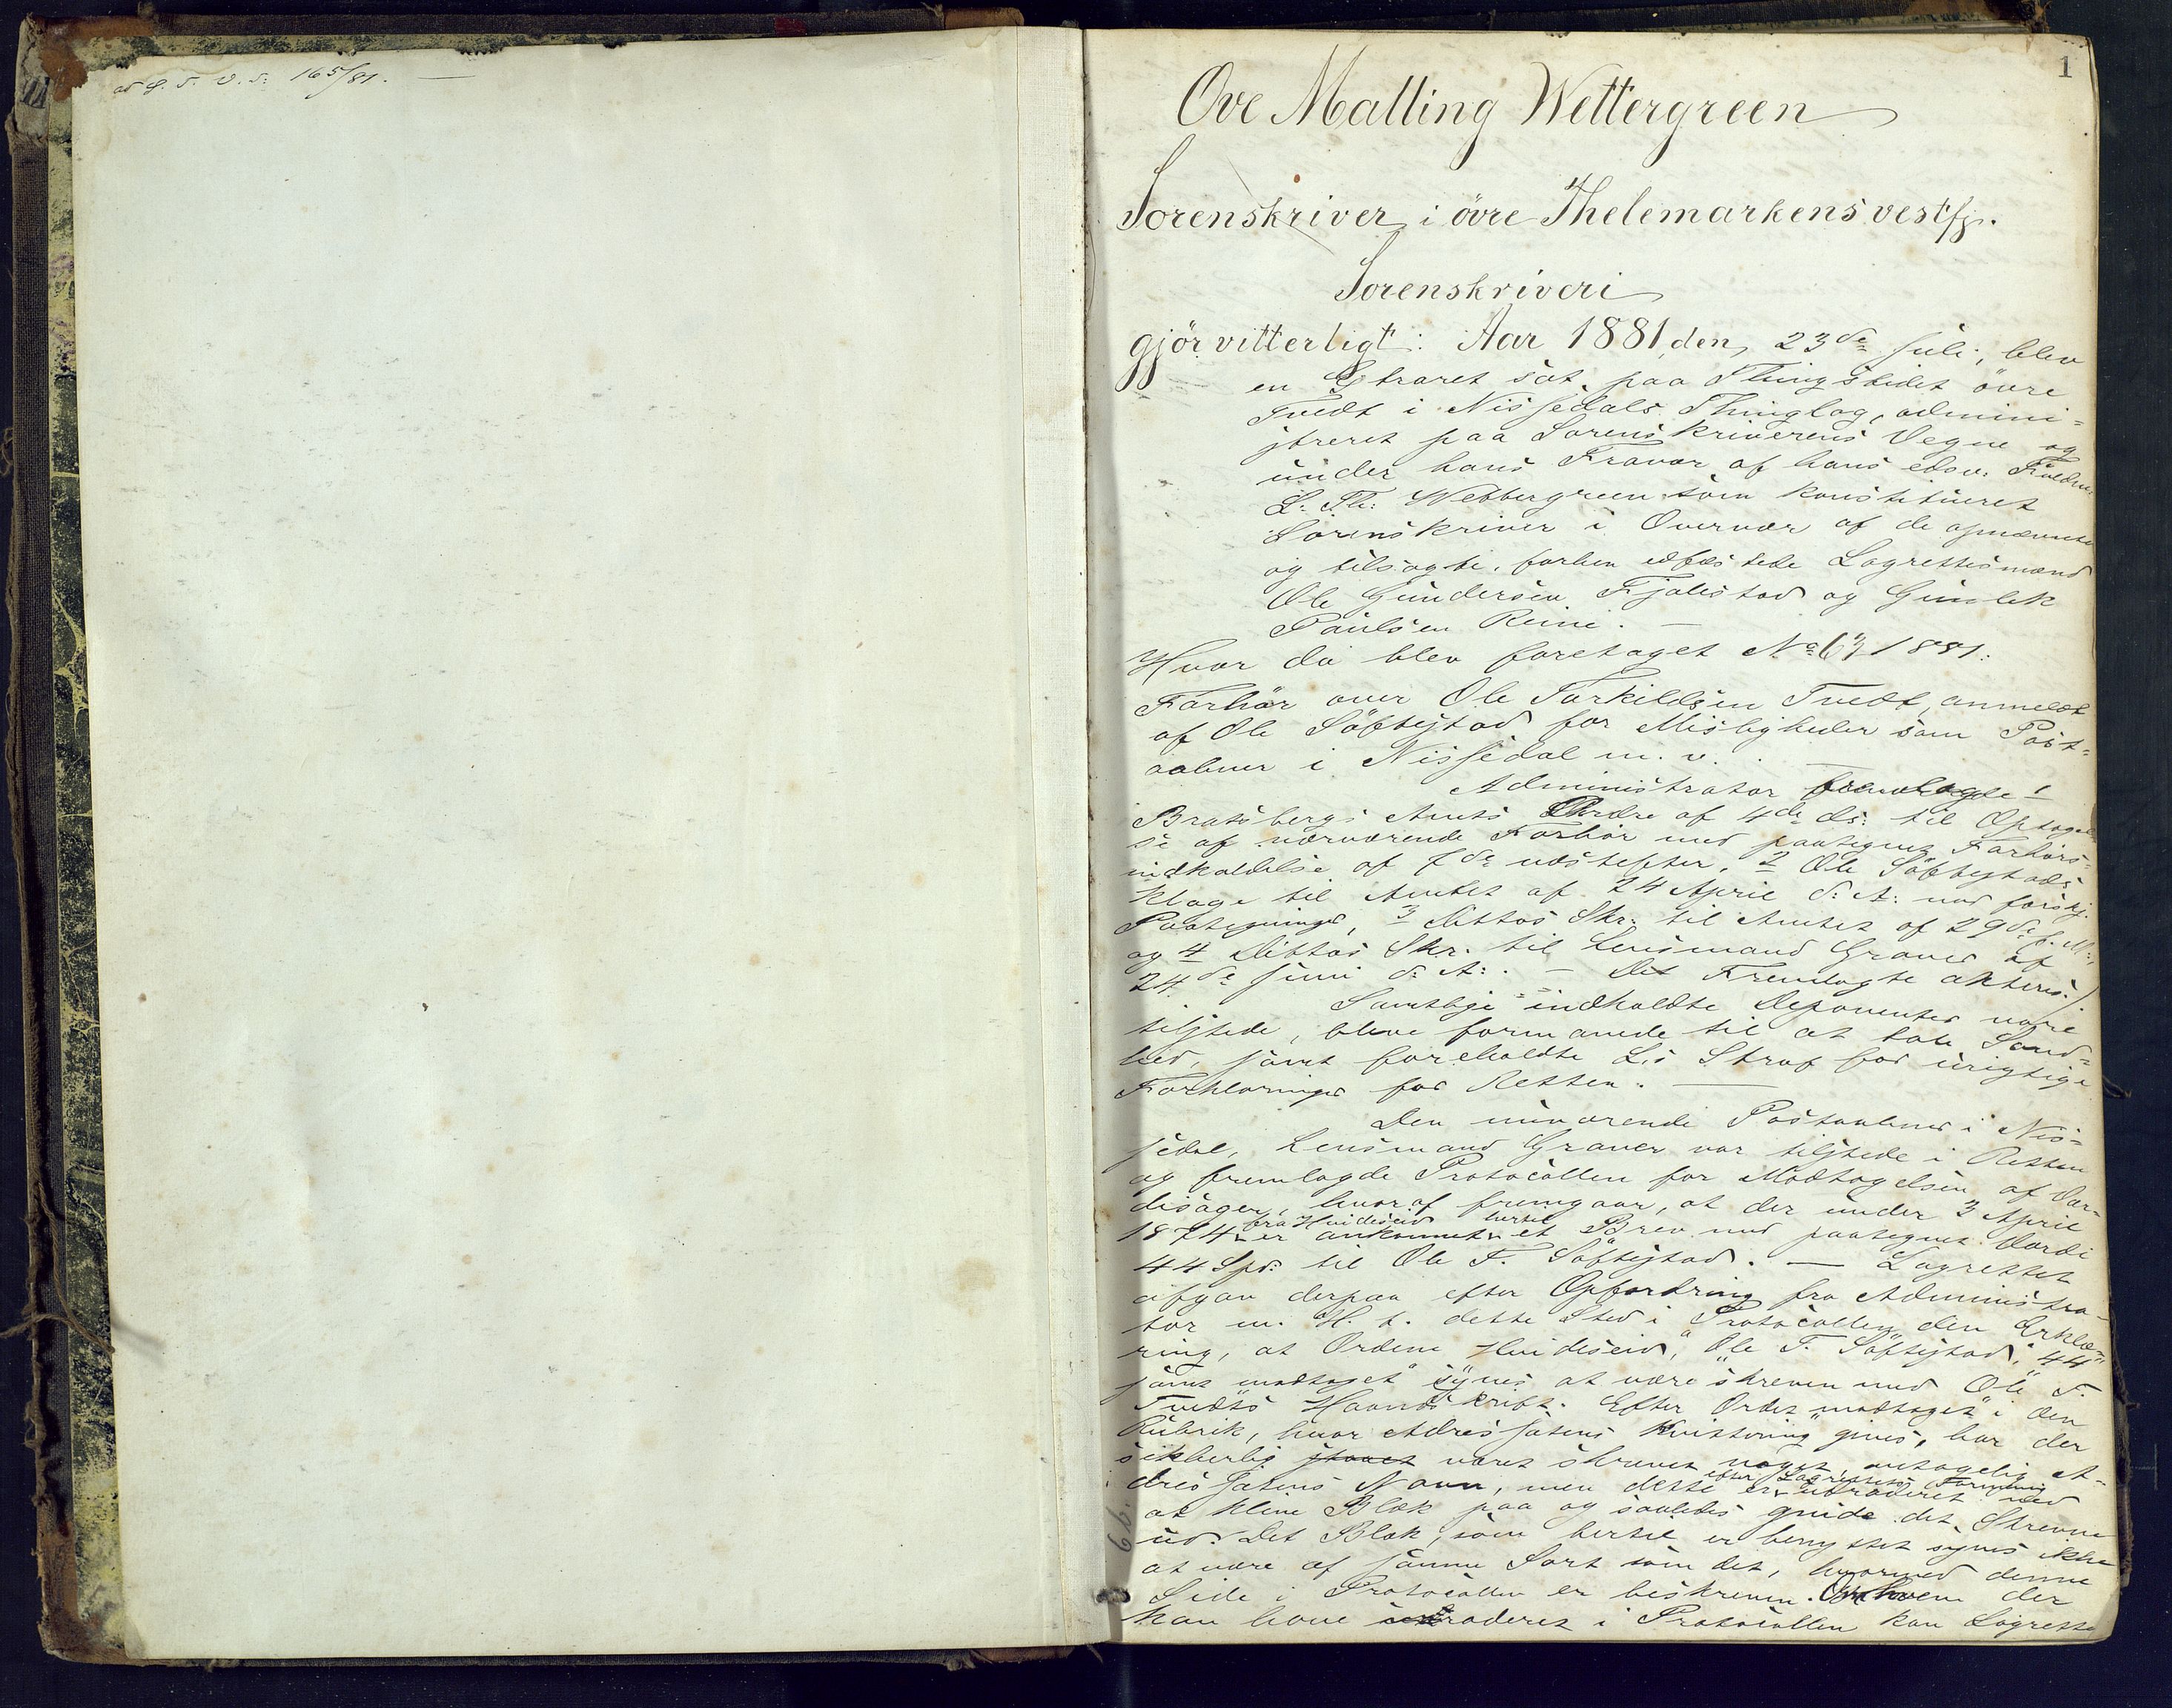 ad J. S. V. S: 165/81. —
1
Ove Malling Wettergreen
Sorenskriver i övre Thelemarkens vestfj.
Sorenskriveri
gjör vitterligt: Aar 1881, den 23de Juli, blev
en Extraret sat paa Thingstedet övre
Tvedt i Nissedals Thinglag, admini-
streret paa Sorenskriverens Vegne og
under hans Fravær af hans edsv. Fuldm:
L: Th: Wettergreen som konstitueret
Sorenskriver i Overvær af de opnævnte
og tilsagte, forhen edfæstede Lagrettesmænd
Ole Gundersen Fjalestad og Gunlek
Paulsen Reine. —
Hvor da blev foretaget No: 63 1881:
Forhör over Ole Torkildsen Tvedt, anmeldt
af Ole Söftestad for Misligheder som Post-
aabner i Nissedal m. v. —
Administrator fremlagde 1
Bratsbergs Amts Ordre af 4de ds: til Optagel-
se af nærværende Forhör med paategnet Forhörs-
indkaldelse af 7de næstefter, 2 Ole Söftestads
Klage til Amtet af 24 April d: A: med forskj.
Paategninger, 3 Dittos Skr: til Amtet af 29de f. M:,
og 4 Dittos Skr. til Lensmand Graver af
24de Juni d. A:. — Det Fremlagte akteres./
Samtlige indkaldte Deponenter vare
tilstede, bleve formanede til at tale Sand-
hed, samt foreholdte L:s Straf for urigtige
Forklaringer for Retten. —
Den nuværende Postaabner i Nis-
sedal, Lensmand Graver var tilstede i Retten
og fremlagde Protocollen for Modtagelsen af Vær-
disager, hvoraf fremgaar, at der under 3 April
1874 fra Hvideseid er ankommet hertil et Brev med paategnet Værdi
44 Spd: til Ole T. Söftestad. — Lagrettet
afgav derpaa efter Opfordring fra Administra-
tor m. H. t. dette Sted i Protocollen den Erklæ-
ring, at Ordene "Hvideseid", "Ole T. Söftestad", "44"
samt "modtaget" synes at være skreven med Ole T.
Tvedts Haandskrift. Efter Ordet "modtaget" i den
Rubrik, hvor Adressatens Kvittering gives, har der
sikkerlig staaet været skrevet noget, antagelig A-
dressatens Navn, men dette er efter Lagrettets Formening udraderet ved
at kline Blæk paa og saaledes gnide det Skrevne
ud. Det Blæk, som hertil er benyttet synes ikke
at være af samme Sort som det, hvormed denne
Side i Protocollen er beskreven. Om hvem der
kan have udraderet i Protocollen kan Lagrette